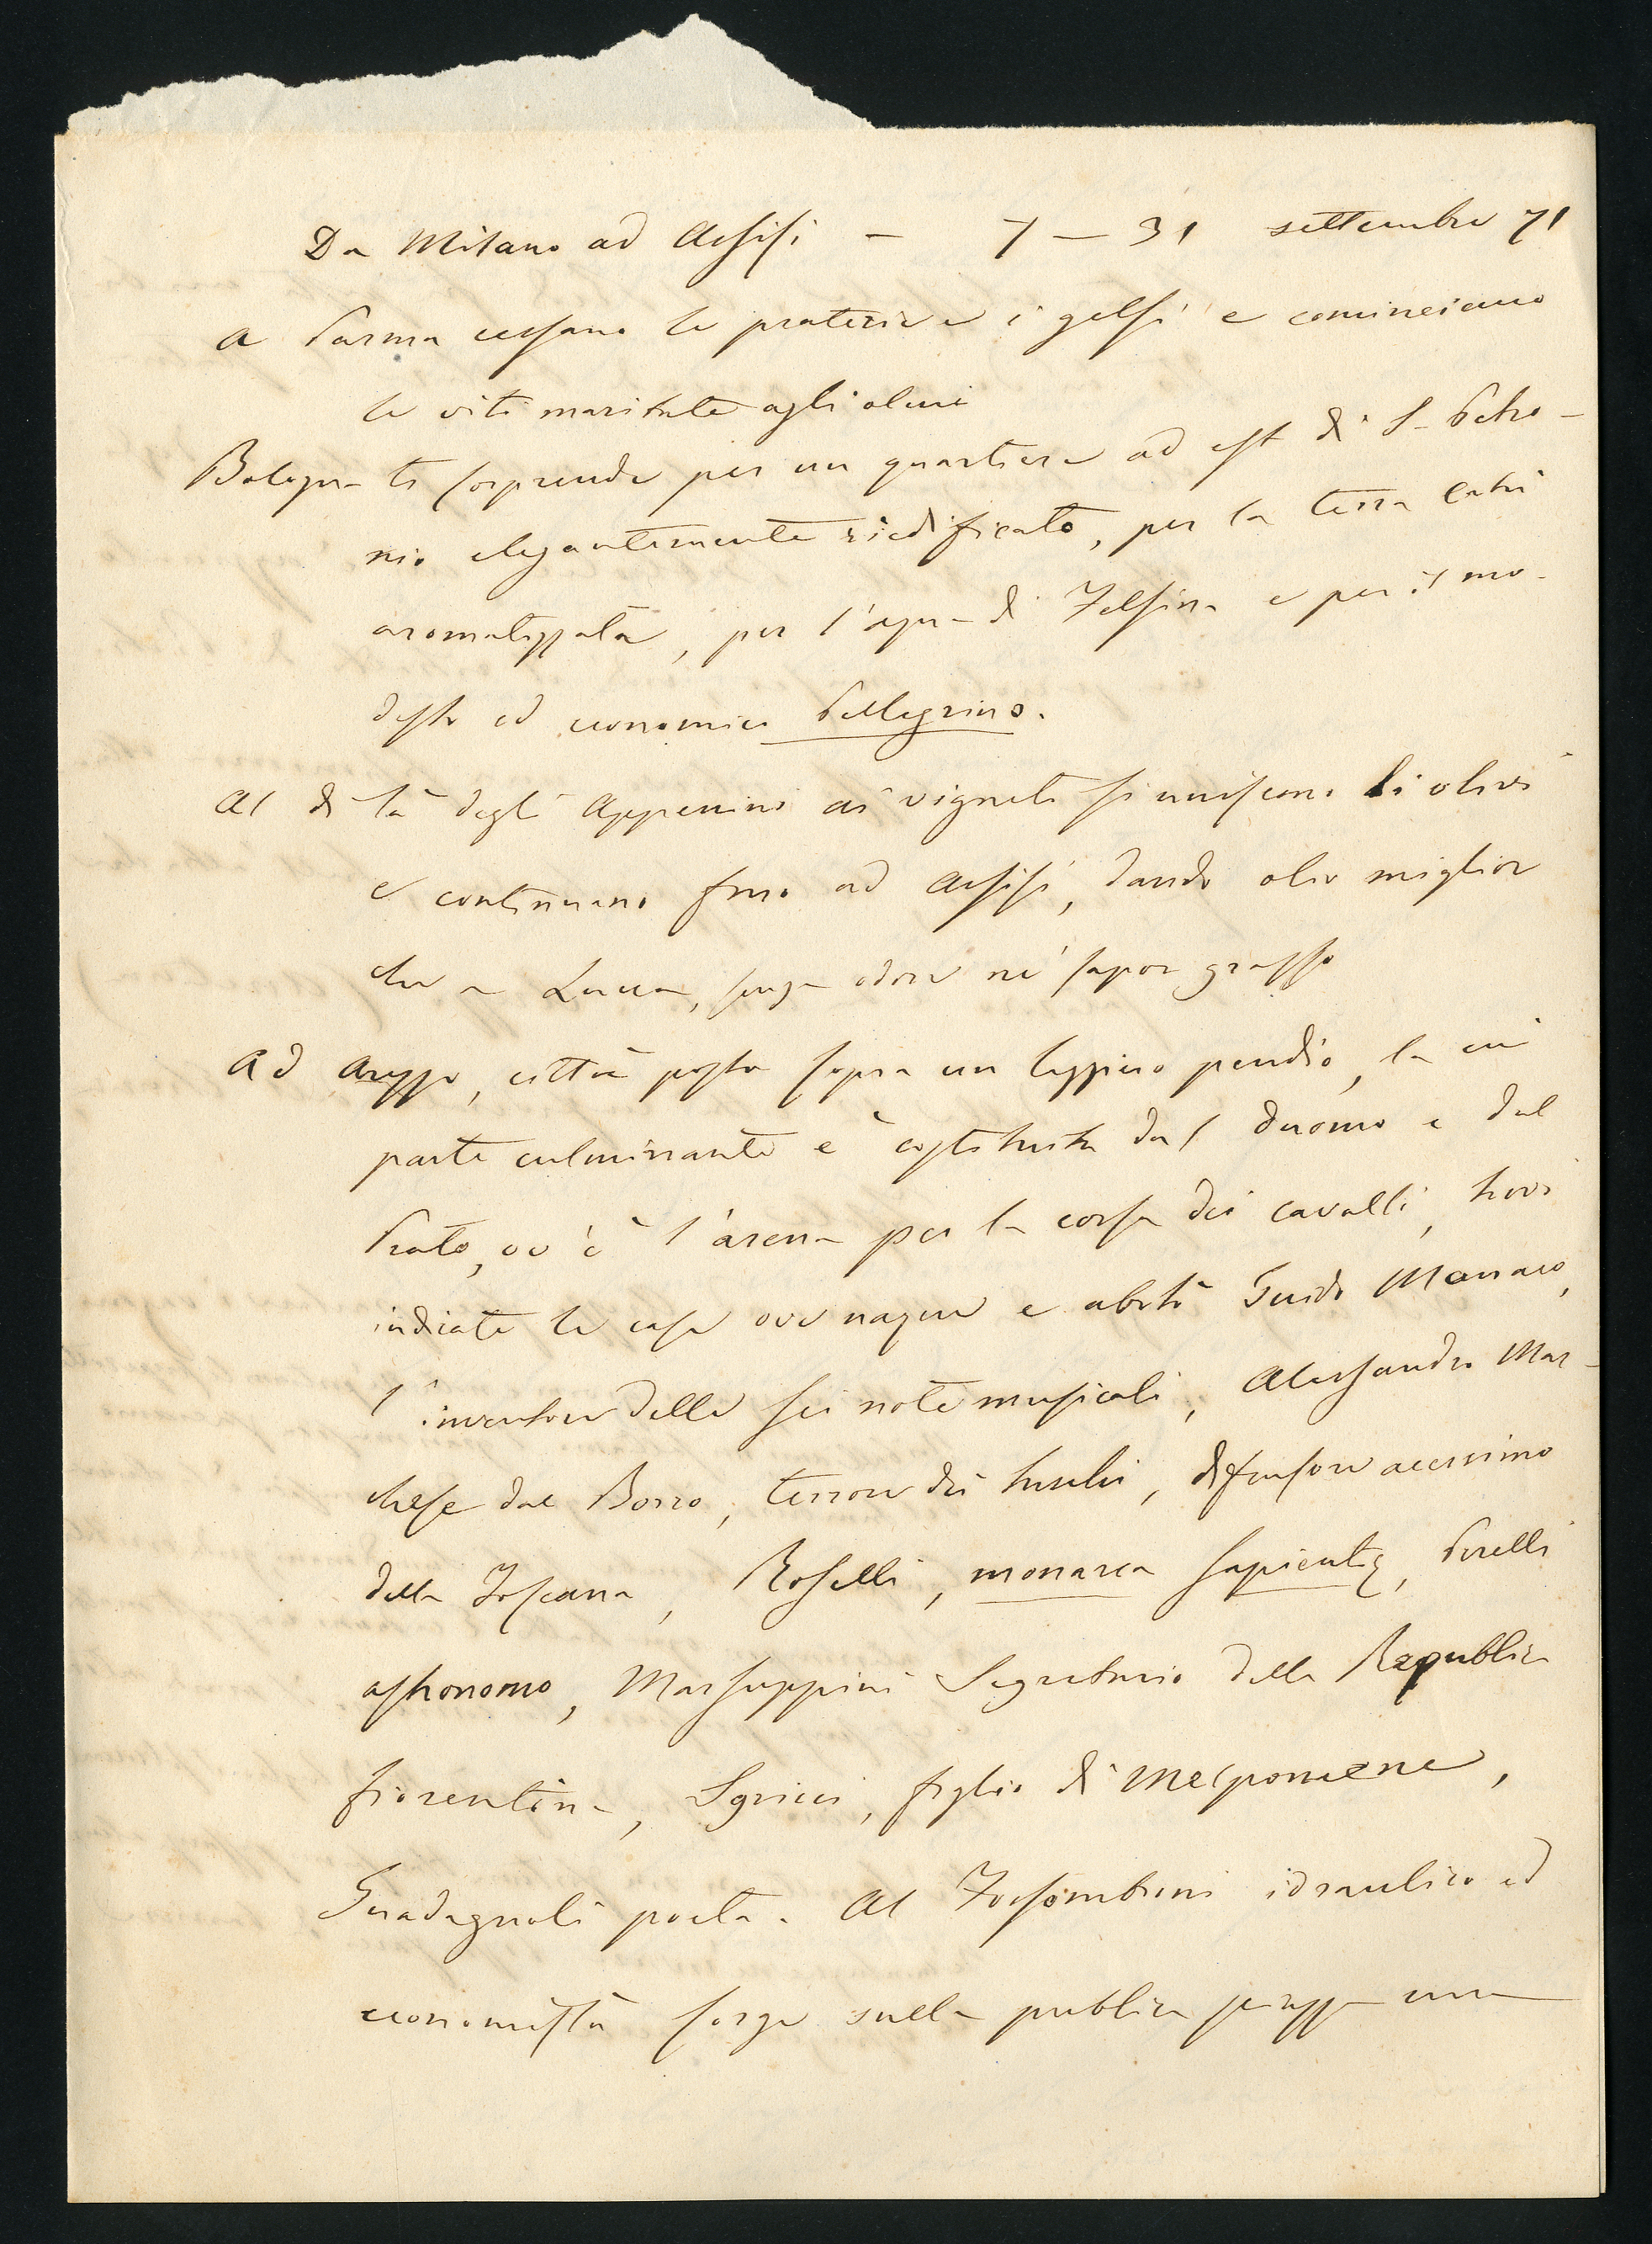 Da Milano ad Assisi — 7 — 31 settembre 71
A Parma cessano le praterie e i gelsi e cominciano
le viti maritate agli olmi
Bologna ti sorprende per un quartiere ad est di S. Petro-
nio elegantemente riedificato, per la terra catù
aromatizzata, per l'aqua di Felsina e per il mo-
desto ed economico Pellegrino.
Al di là degli Appennini ai vigneti si uniscono li olivi
e continuano fino ad Assisi, dando olio miglior
che a Lucca, senza odore nè sapor grasso
Ad Arezzo, città posta sopra un leggiero pendio, la cui
parte culminante è costituita dal duomo e dal
Prato, ov'è l'arena per la corsa dei cavalli, trovi
indicate le case ove naque e abitò Guido Monaco,
l'inventore delle sei note musicali, Alessandro Mar-
chese dal Borro, terrore dei turchi, difensore acerrimo
della Toscana, Roselli, monarca sapientię, Perelli
astronomo, Marsuppini Segretario della Republica
fiorentina, Sgricci, figlio di Melpomene,
Guadagnoli poeta. Al Fossombroni idraulico ed
economista sorge sulla publica piazza una